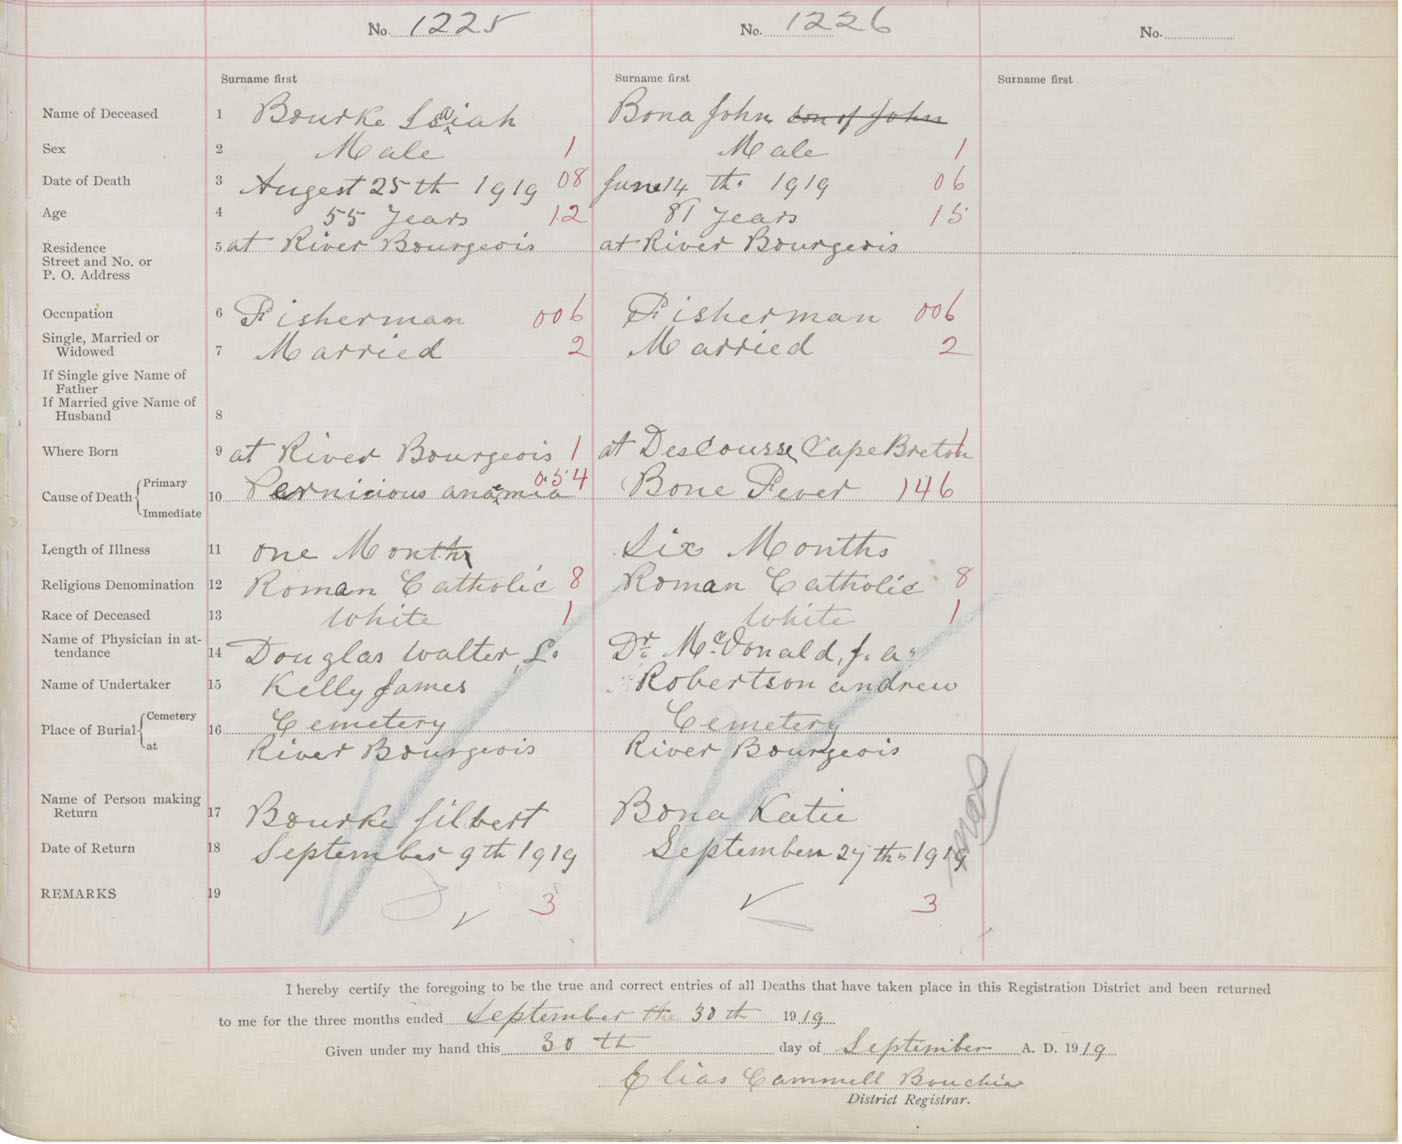 No. 1225 No. 1226 No.
Surname first Surname first Surname first
Name of Deceased 1 Bourke Isaiah Bona John son of John
Sex 2 Male 1 Male 1
Date of Death 3 Augest 25th 1919 08 June 14 th. 1919 06
Age 4 55 Years 12 81 Years 15
Residence 5 at River Bourgeois at River Bourgeois
Street and No. or
P. O. Address
Occupation 6 Fisherman 006 Fisherman 006
Single, Married or
Widowed 7 Married 2 Married 2
If Single give Name of
Father
If Married give Name of
Husband 8
Where Born 9 at River Bourgeois 1 at DesCousse Cape Breton 1
Cause of Death { Primary
10 Pernicious anaemia 054 Bone Fever 146
Immediate
Length of Illness 11 one Month Six Months
Religious Denomination 12 Roman Catholic 8 Roman Catholic 8
Race of Deceased 13 White 1 White 1
Name of Physician in at-
tendance 14 Douglas Walter, L. Dr. McDonald, J. a.
Name of Undertaker 15 Kelly James Robertson andrew
Place of Burial { Cemetery 16 Cemetery Cemetery
at River Bourgeois River Bourgeois
Name of Person making
Return 17 Bourke Gilbert Bona Katie
Date of Return 18 September 9th 1919 September 27th. 1919
REMARKS 19 3 3
I hereby certify the foregoing to be the true and correct entries of all Deaths that have taken place in this Registration District and been returned
to me for the three months ended September the 30th 1919
Given under my hand this 30th day of September A. D. 1919
Elias Cammell Bouchie
District Registrar.